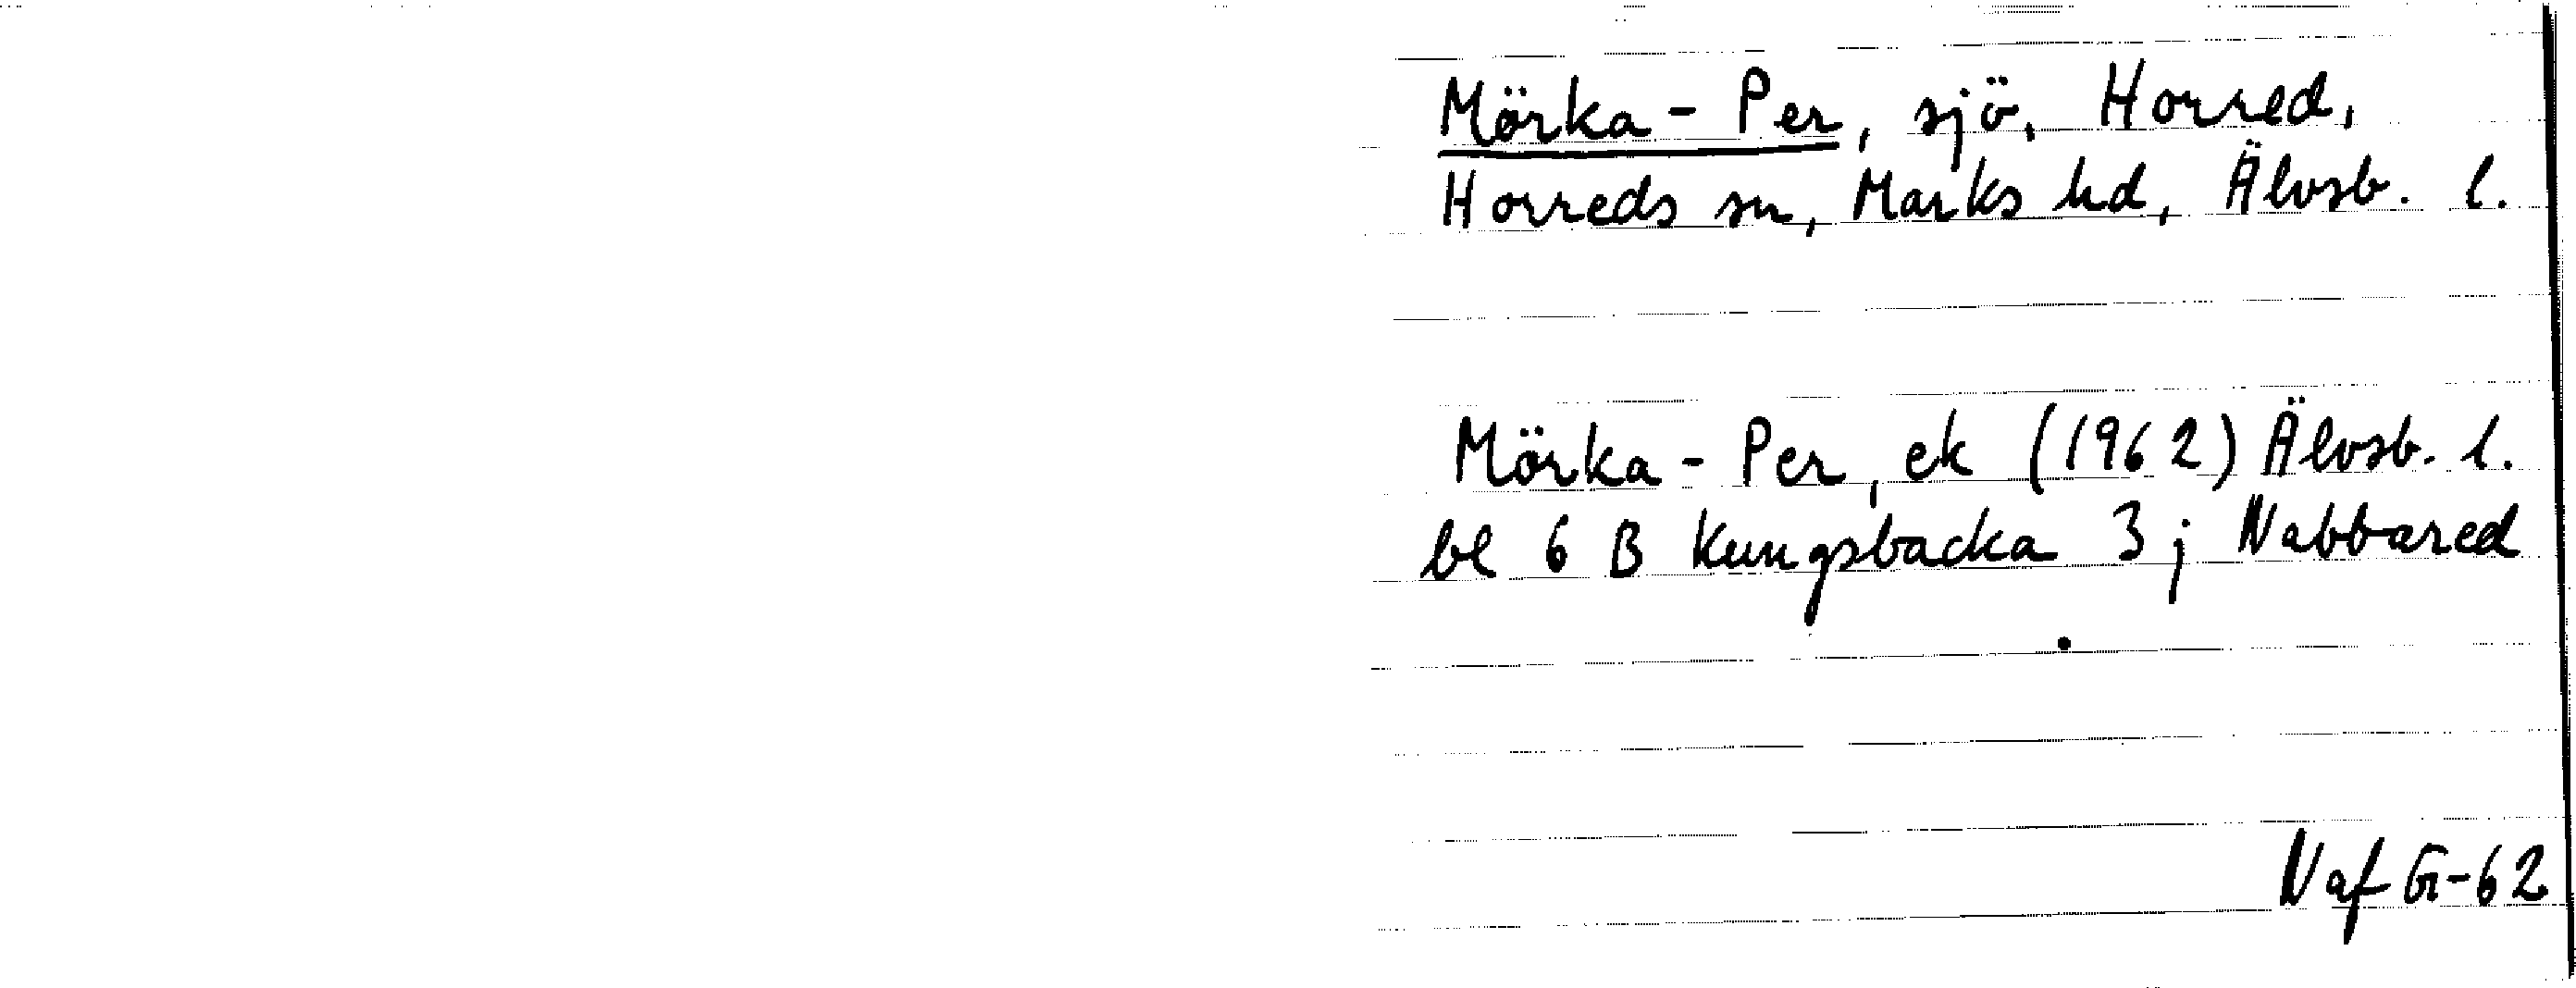 Mörka-Per, sjö, Horred,
Horreds sn, Marks hd, Älvsb. l.
Mörka-Per, ek (1962) Älvsb. l.
bl 6 B Kungsbacka 3 j Nabbared
Naf G-62